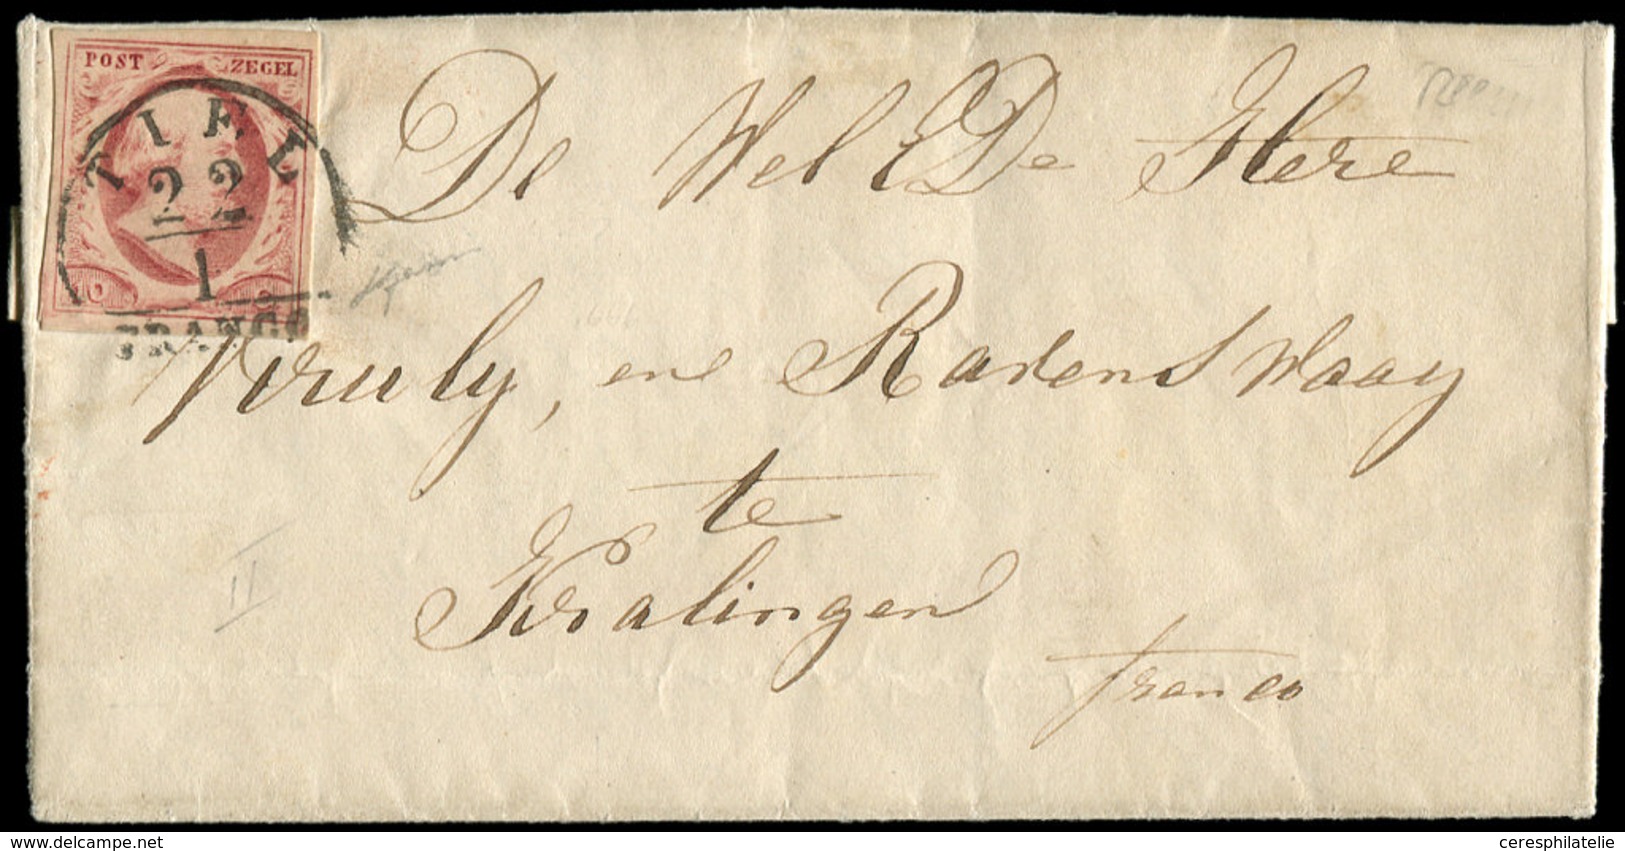 POST ZEGEL
TIEL
22
1
FRANCO
De Wel E De Here
Vruly, en Ravenswaay
te
Kralingen
franco
II
delcampe.net
ceresphilatelie